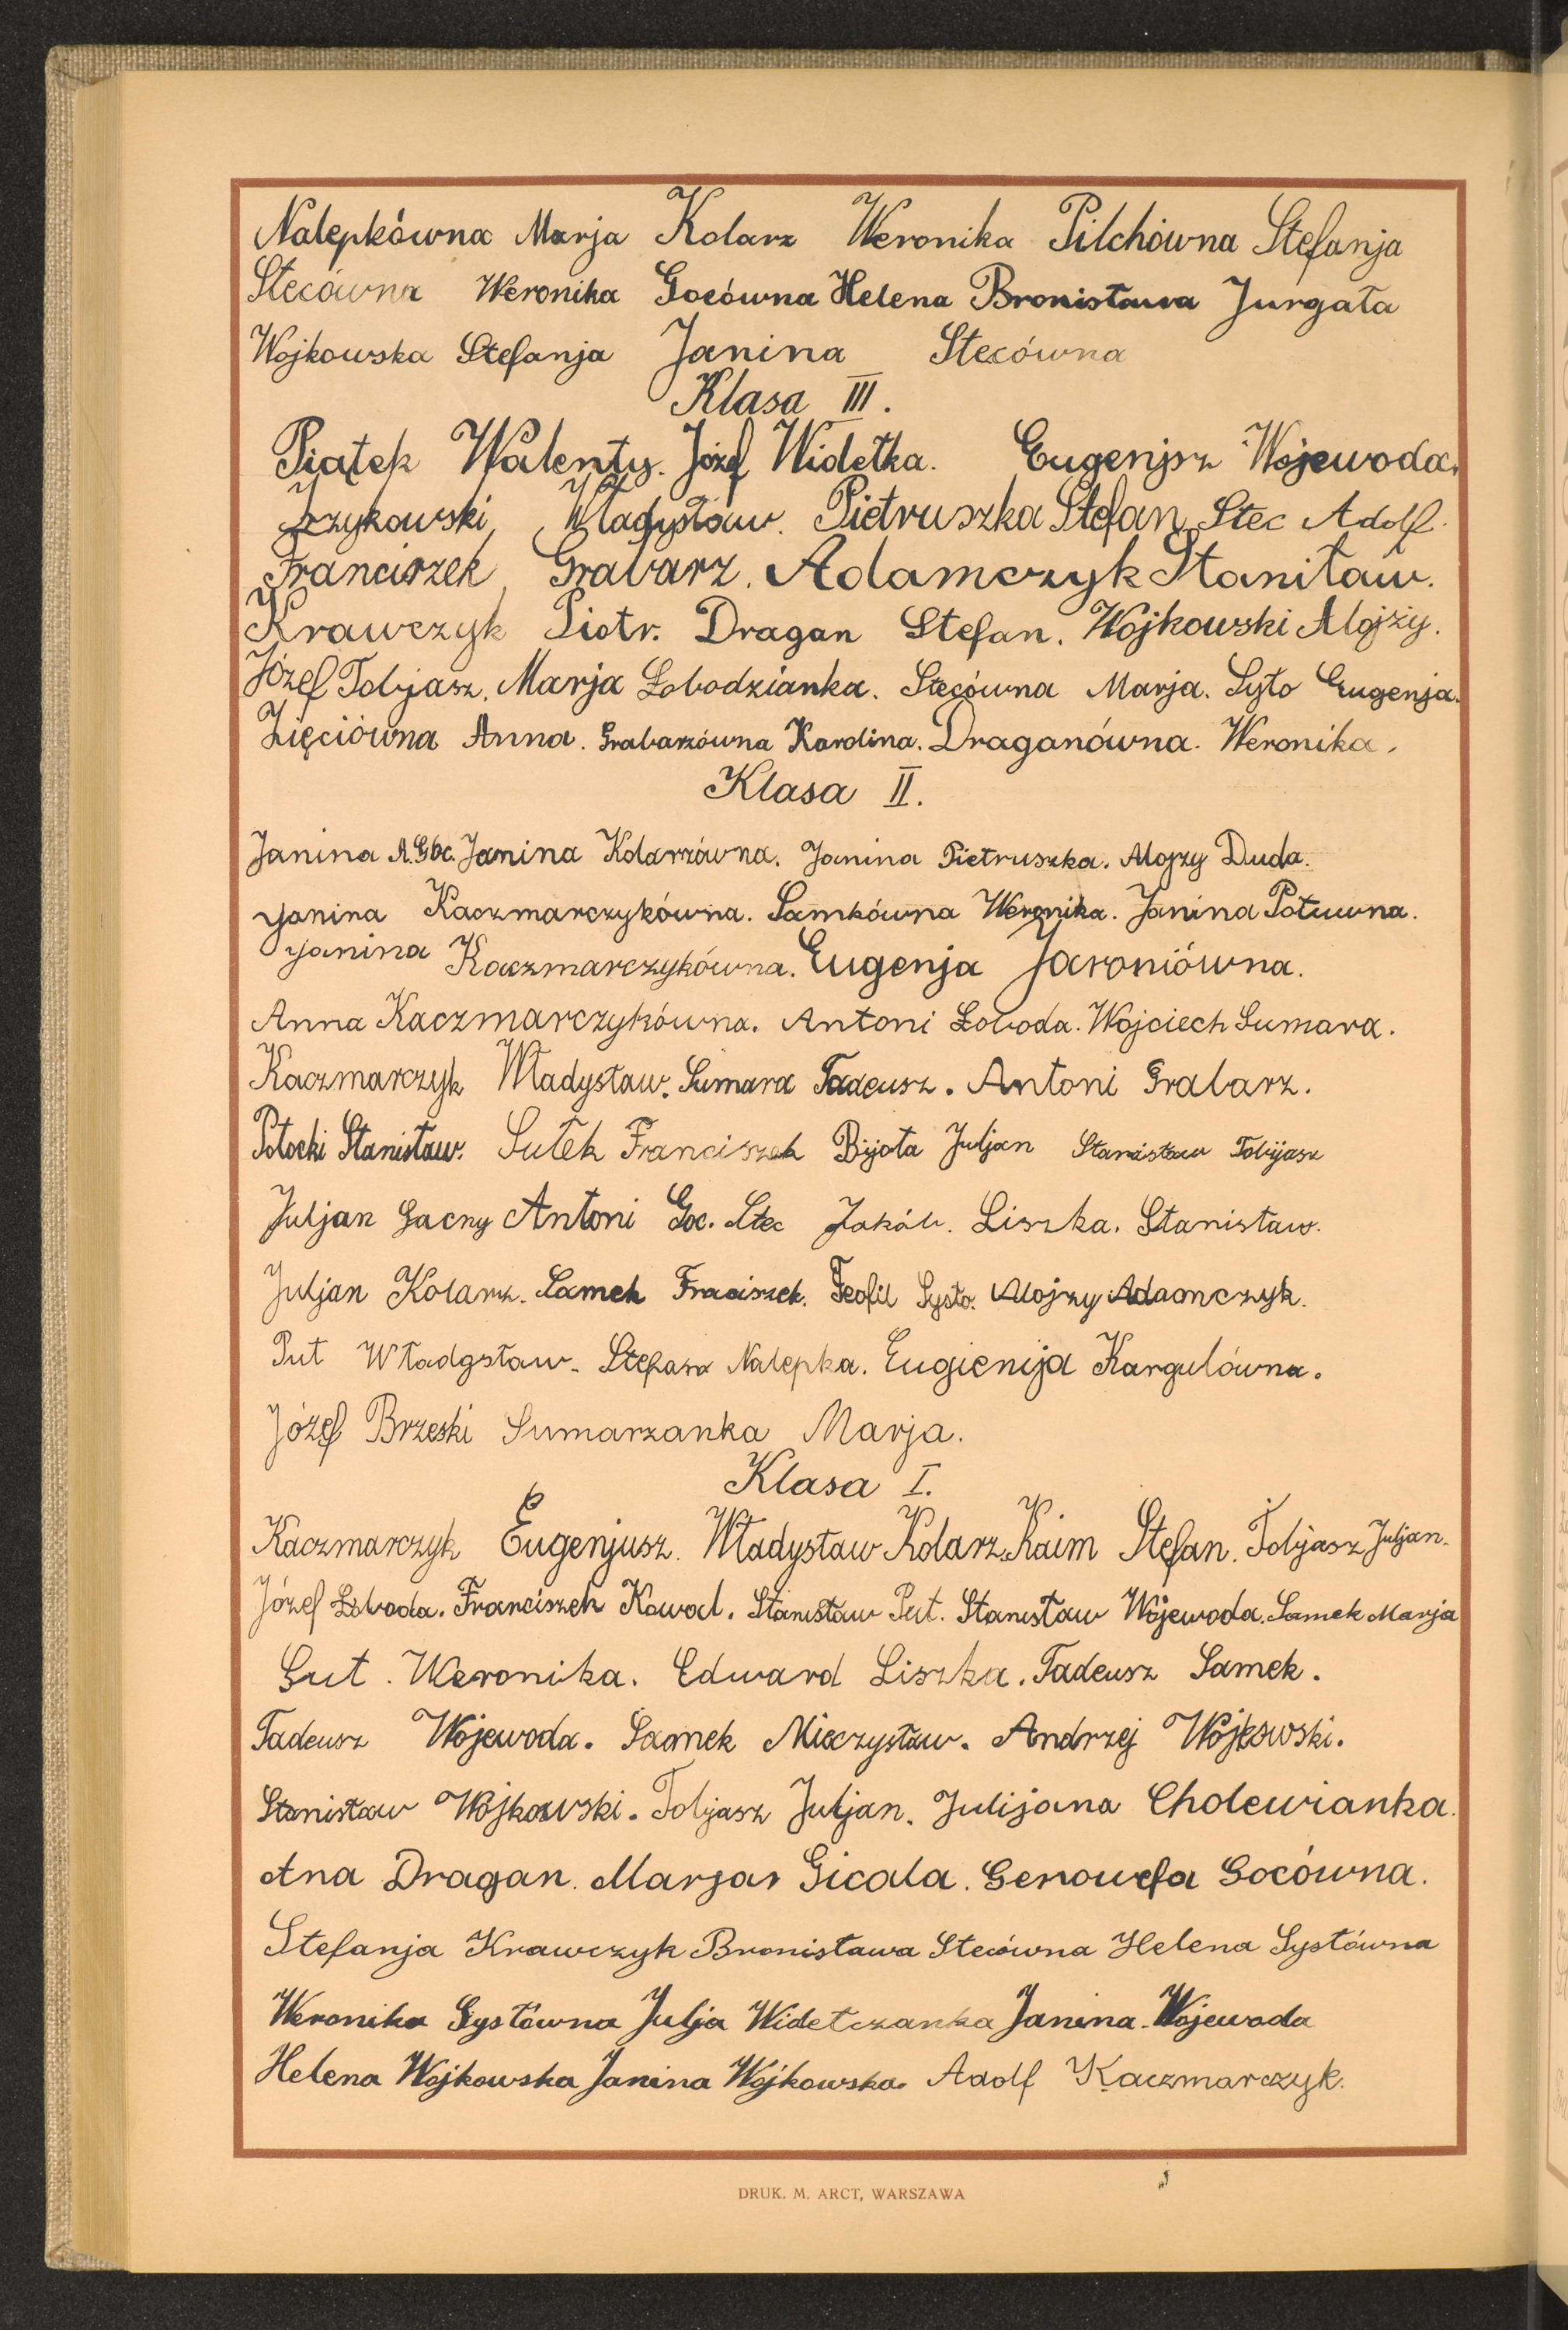 Nalepkówna Marja Kolarz Weronika Pilchówna Stefanja
Stecówna Weronika Gocówna Helena Bronisława Jurgała
Wojkowska Stefanja Janina Stecówna
Klasa III.
Piątek Walenty. Józef Widełka. Eugenjsz Wojewoda.
Władysław. Pietruszka Stefan. Stec Adolf.
Franciszek Grabarz. Adamczyk Stanitaw.
Krawczyk Piotr. Dragan Stefan. Wojkowski Alojzy.
Józef Tobjasz. Marja Łobodzianka. Stecówna Marja. Syto Eugenja.
Zięciówna Anna. Grabarzówna Karolina. Draganówna. Weronika.
Klasa II.
Janina Janina Kolarzówna. Janina Pietruszka. Alojzy Duda.
Janina Kaczmarczykówna. Samkówna Weronika. Janina Putuwna.
Janina Kaczmarczykówna. Eugenja Jaroniówna.
Anna Kaczmarczykówna. Antoni Łoboda. Wojciech Sumara.
Kaczmarczyk Władysław. Sumara Tadeusz. Antoni Grabarz.
Potocki Stanisław. Sułek Franciszek Bijota Juljan Stanisław Tobijasz
Juljan Gacny Antoni Goc. Stec Jakób. Liszka. Stanisław.
Juljan Kolarz. Samek Fraciszek. Teofil Systo. Alojzy Adaomczyk.
Put Władgsław. Stefan Nalepka. Eugienija Kargulówna.
Józef Brzeski Sumarzanka Marja.
Klasa I.
Kaczmarczyk Eugenjusz. Władysław Kolarz. Kaim Stefan. Tobjasz Juljan.
Józef Łoboda. Franciszek Kowal. Stanisław Put. Stanisław Wojewoda. Samek Marja
Gut. Weronika. Edward Liszka. Tadeusz Samek.
Tadeusz Wojewoda. Samek Mieczysław. Andrzej Wójkowski.
Stanisław Wójkowski. Tobjasz Juljan. Julijana Cholewianka.
Ana Dragan. Marja Gicala. Genowefa Gocówna.
Stefanja Krawczyk Bronisława Stecówna Helena Systówna
Weronika Systówna Julja Widetczanka Janina Wojewoda
Helena Wojkowska Janina Wójkowska. Adolf Kaczmarczyk.
DRUK. M. ARCT, WARSZAWA